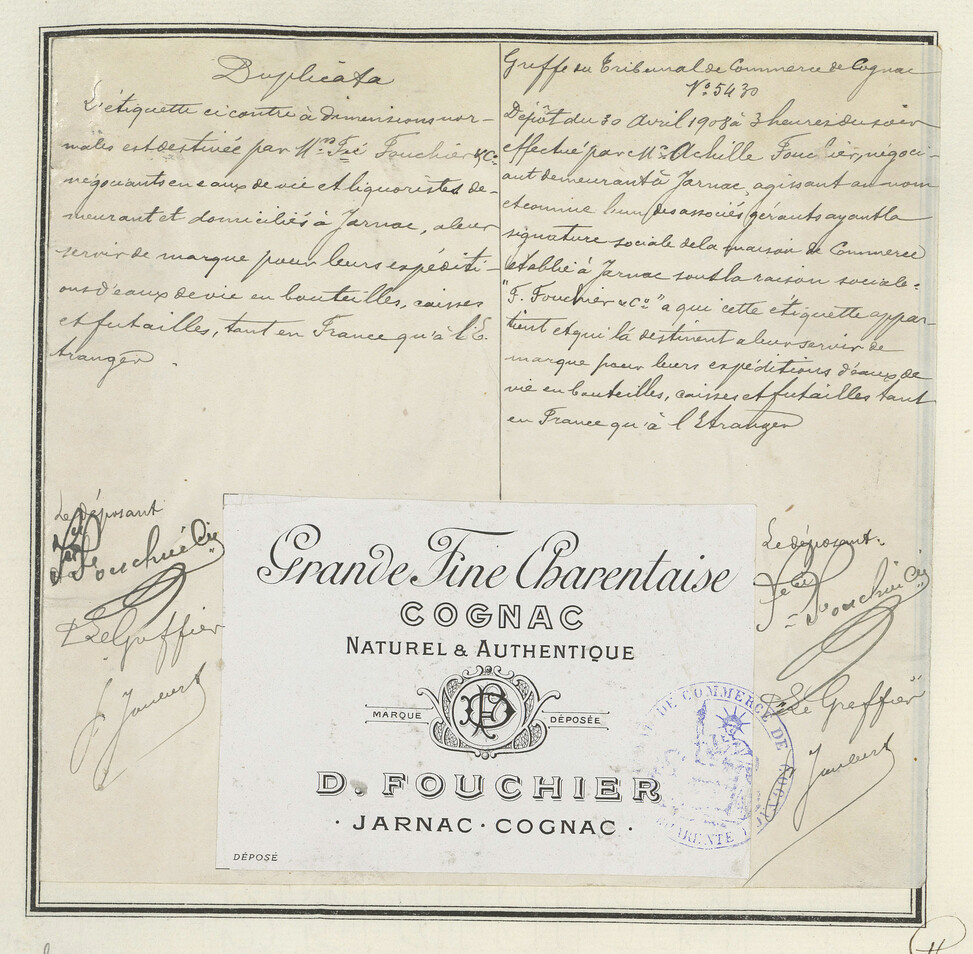 Duplicata
L'étiquette ci contre à dimensions nor-
males est destinée par M.rs Fçs Fouchier & Co
négociants en eaux de vie et liquoristes de-
meurant et domiciliés à Jarnac, a leur
servir de marque pour leurs expéditi-
ons d'eaux de vie en bouteilles, caisses
et futailles, tant en France qu'à l'E-
tranger.
Le déposant
Fouchié Cie
Le Greffier
Greffe du Tribunal de Commerce de Cognac
No 5430
Dépôt du 30 Avril 1908 à 3 heures du soir
effectué par Mr. Achille Fouchier, négoci-
ant demeurant à Jarnac, agissant au nom
et comme l'un des associés gérants ayant la
signature sociale de la maison de Commerce
établie à Jarnac sous la raison sociale:
"F. Fouchier & Co" a qui cette étiquette appar-
tient et qui la destinent a leur servir de
marque pour leurs expéditions d'eaux de
vie en bouteilles, caisses et futailles tant
en France qu'à l'Etranger
Le déposant.
Fouchié Cie
"Le Greffier"
Grande Fine Charentaise
COGNAC
NATUREL & AUTHENTIQUE
MARQUE DÉPOSÉE
D. FOUCHIER
· JARNAC · COGNAC ·
DÉPOSÉ
DE COMMERCE DE COGNAC
CHARENTE